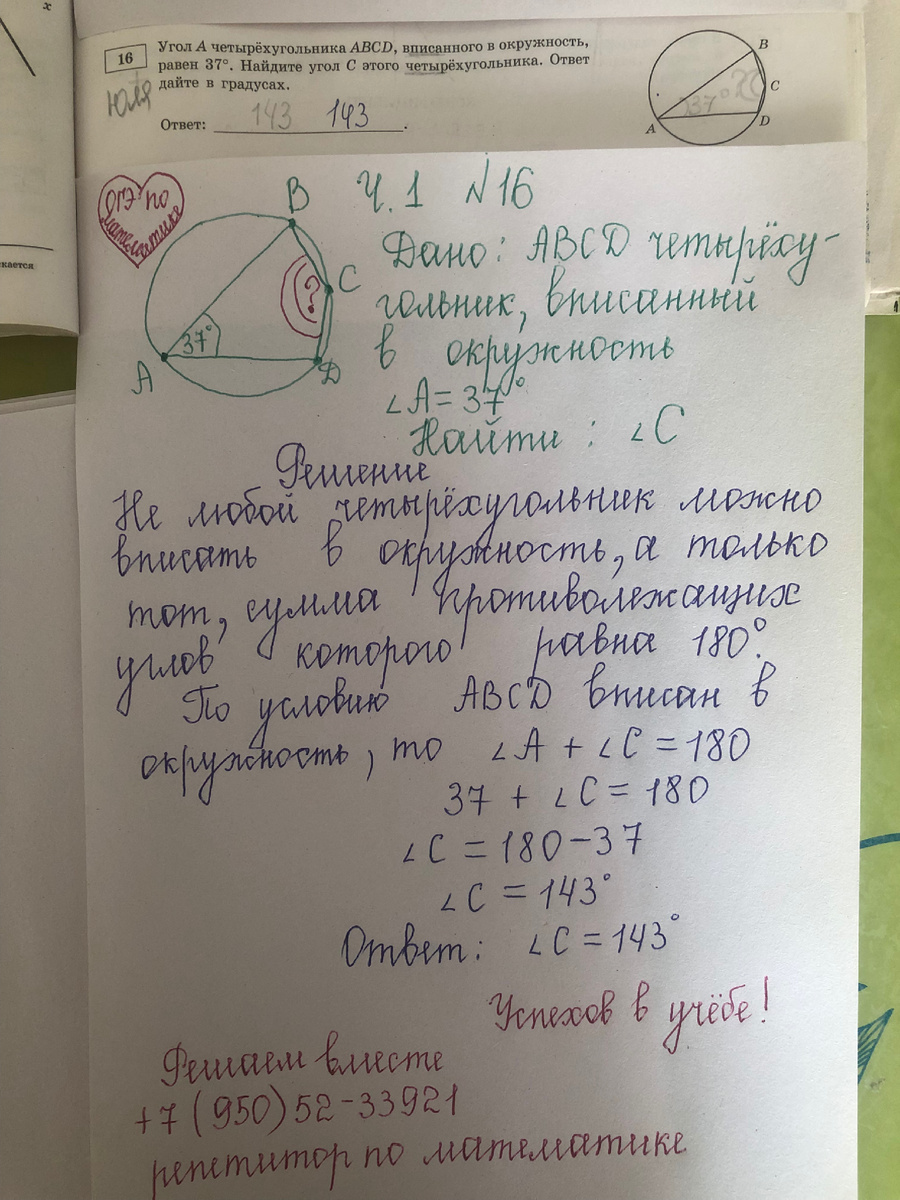 x
16
Угол A четырёхугольника ABCD, вписанного в окружность,
равен 37°. Найдите угол C этого четырёхугольника. Ответ
дайте в градусах.
Юля
Ответ: 143 143.
B
C
D
A
37°
скается
ОГЭ по
математике
Ч.1 №16
B
C
?
37°
A
D
Дано: ABCD четырёху-
гольник, вписанный
в окружность
∠A = 37°
Найти: ∠C
Решение
Не любой четырёхугольник можно
вписать в окружность, а только
тот, сумма противолежащих
углов которого равна 180°.
По условию ABCD вписан в
окружность, то ∠A + ∠C = 180
37 + ∠C = 180
∠C = 180-37
∠C = 143°
Ответ: ∠C = 143°
Успехов в учёбе!
Решаем вместе
+7 (950) 52-33921
репетитор по математике